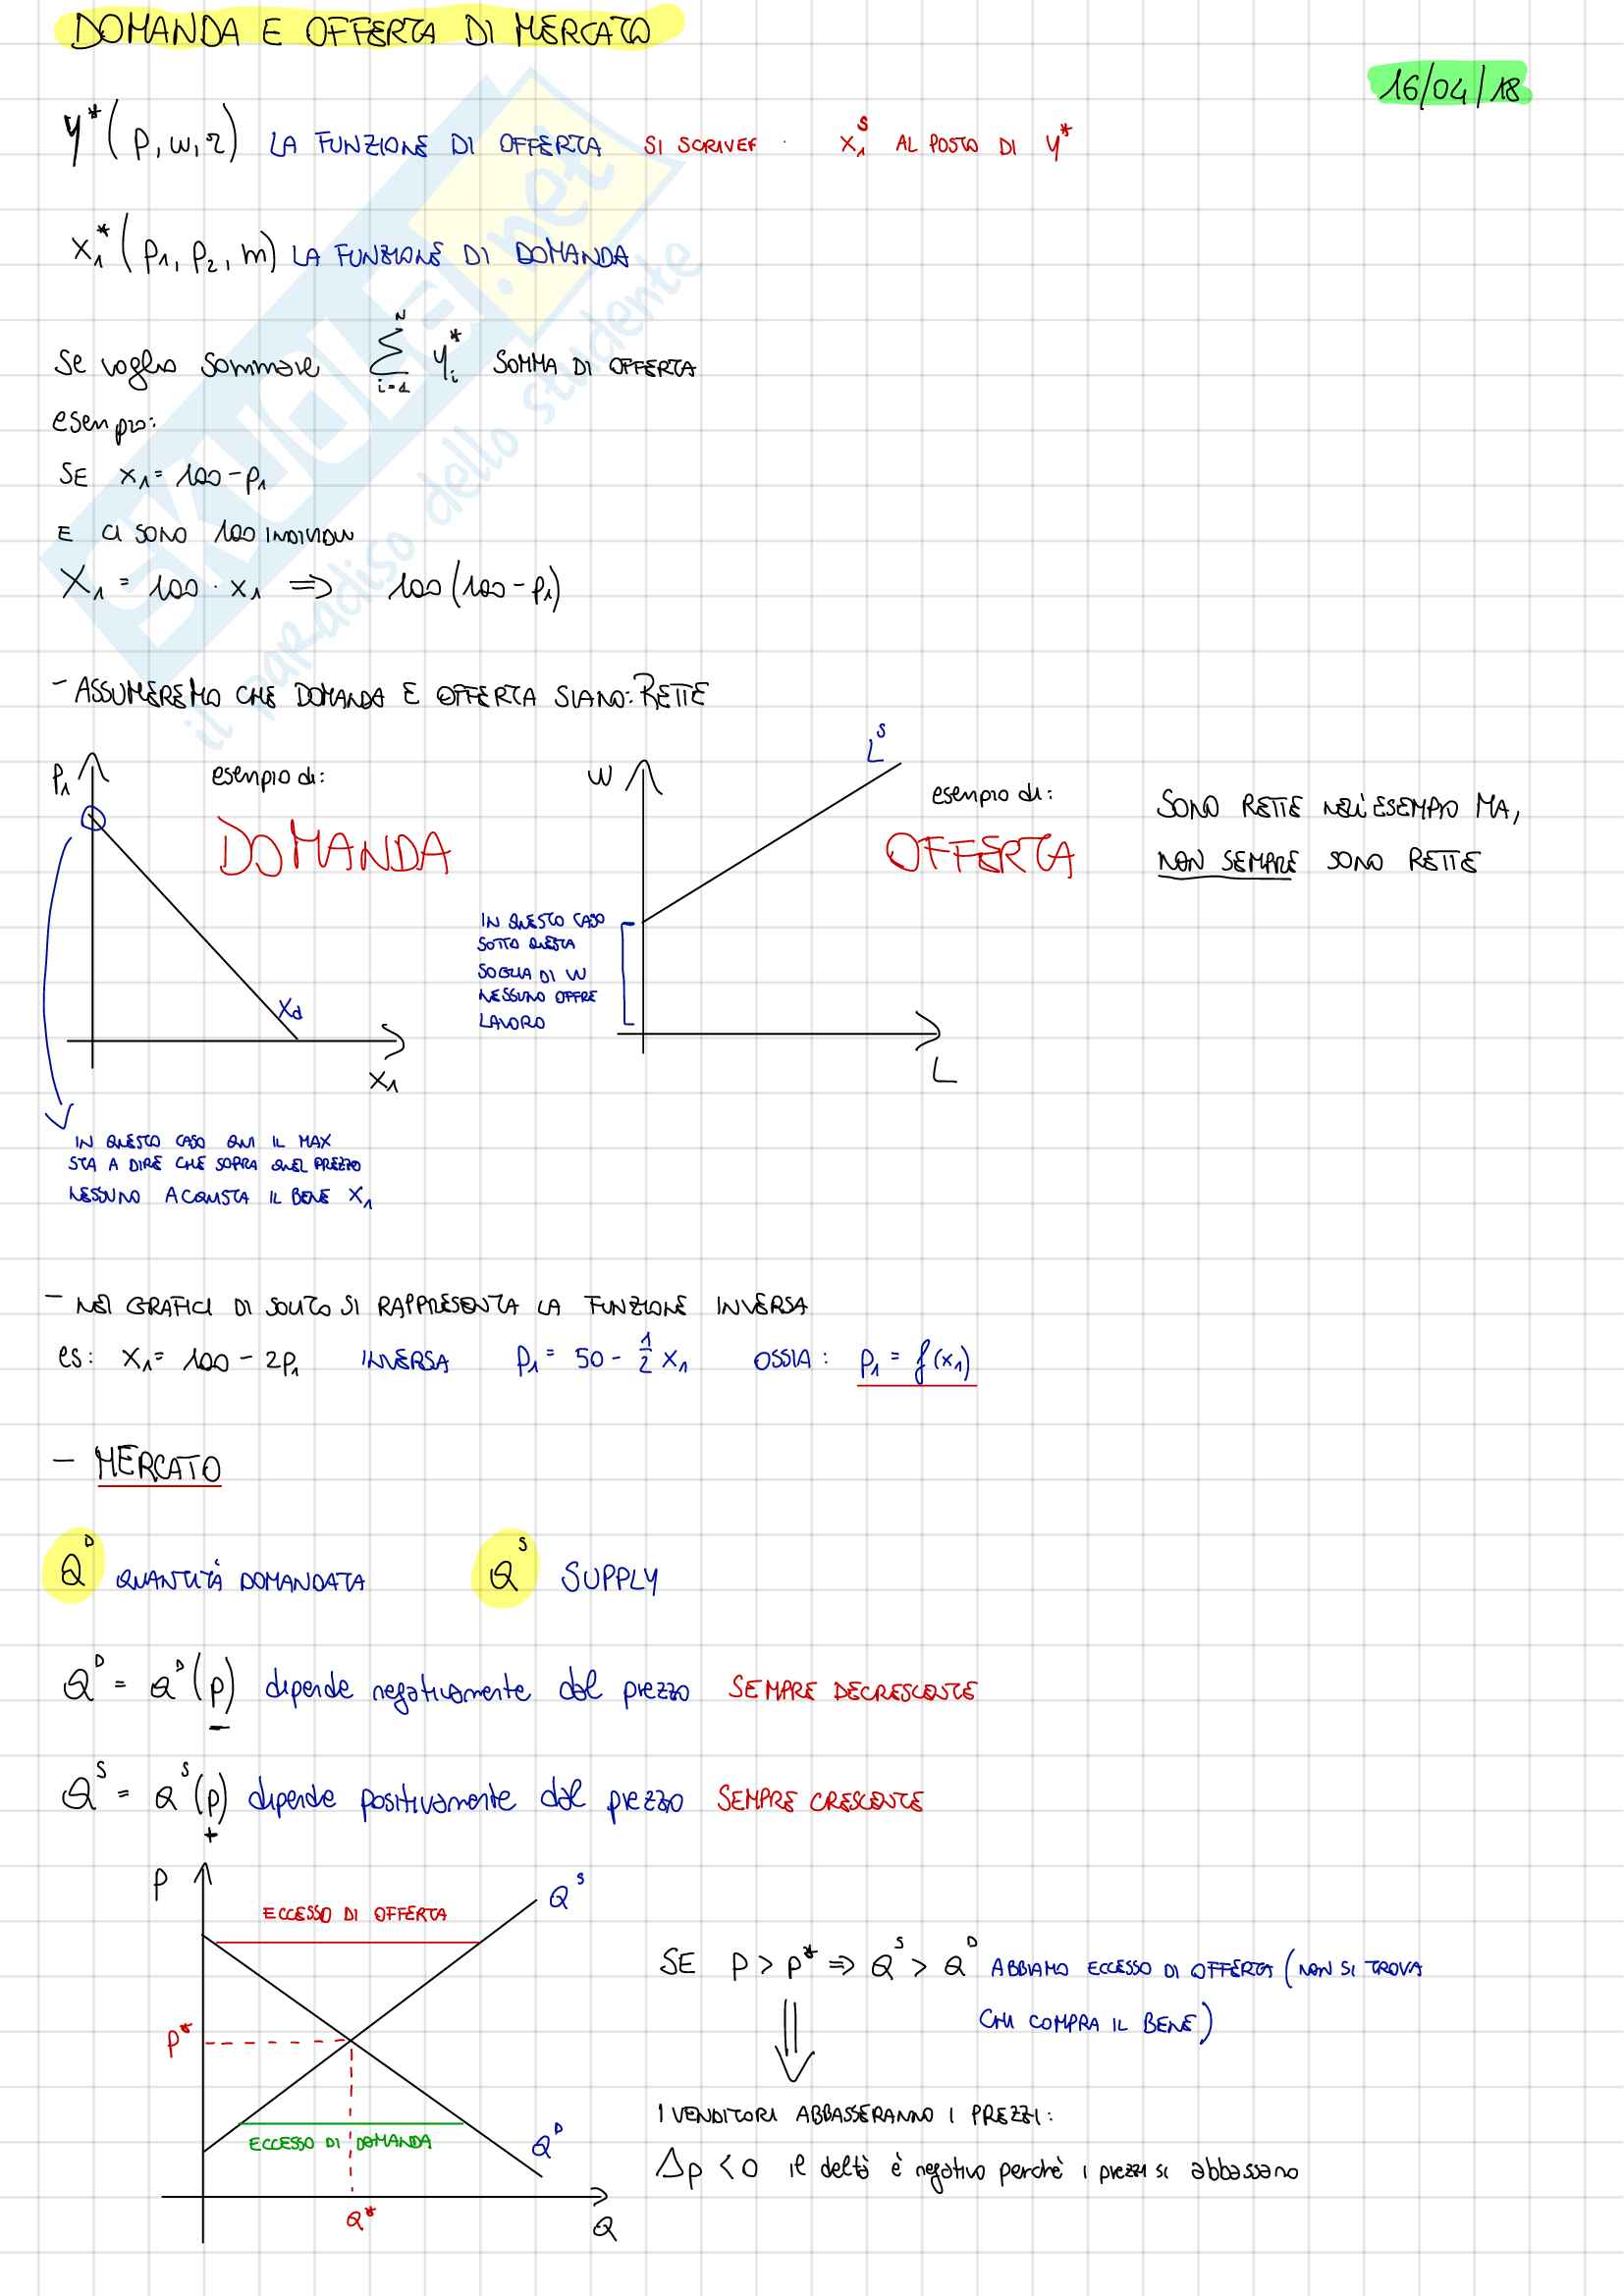 DOMANDA E OFFERTA DI MERCATO
16/04/18
y*(p,w,r) LA FUNZIONE DI OFFERTA SI SCRIVE x₁ˢ AL POSTO DI y*
x₁*(p₁, p₂, m) LA FUNZIONE DI DOMANDA
Se voglio sommare ∑ᵢ₌₁ᴺ yᵢ* SOMMA DI OFFERTA
esempio:
SE x₁ = 100 - p₁
E CI SONO 100 INDIVIDUI
X₁ = 100 · x₁ ⇒ 100(100 - p₁)
- ASSUMEREMO CHE DOMANDA E OFFERTA SIANO: RETTE
p₁
esempio di:
DOMANDA
Xd
X₁
IN QUESTO CASO QUI IL MAX
STA A DIRE CHE SOPRA QUEL PREZZO
NESSUNO ACQUISTA IL BENE X₁
W
Lˢ
esempio di:
OFFERTA
IN QUESTO CASO
SOTTO QUESTA
SOGLIA DI W
NESSUNO OFFRE
LAVORO
L
SONO RETTE NELL'ESEMPIO MA,
NON SEMPRE SONO RETTE
- NEI GRAFICI DI SOLITO SI RAPPRESENTA LA FUNZIONE INVERSA
es: x₁ = 100 - 2p₁ INVERSA p₁ = 50 - 1/2 x₁ OSSIA: p₁ = f(x₁)
- MERCATO
Qᴰ QUANTITÀ DOMANDATA Qˢ SUPPLY
Qᴰ = Qᴰ(p) dipende negativamente dal prezzo SEMPRE DECRESCENTE
-
Qˢ = Qˢ(p) dipende positivamente dal prezzo SEMPRE CRESCENTE
+
P
Qˢ
ECCESSO DI OFFERTA
P*
ECCESSO DI DOMANDA
Qᴰ
Q*
Q
SE P > P* ⇒ Qˢ > Qᴰ ABBIAMO ECCESSO DI OFFERTA (NON SI TROVA
CHI COMPRA IL BENE)
I VENDITORI ABBASSERANNO I PREZZI:
Δp < 0 il delta è negativo perchè i prezzi si abbassano
SKUOLA.net
il paradiso dello studente